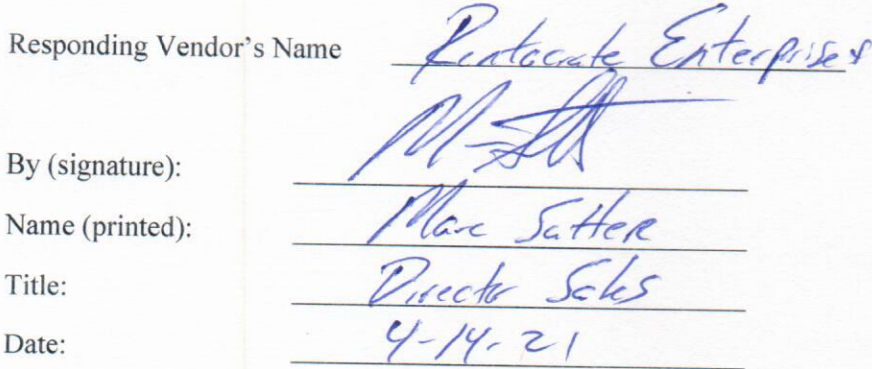 Responding Vendor's Name Rentacrate Enterprises
By (signature):
Name (printed): Marc Satter
Title: Director Sales
Date: 4-14-21